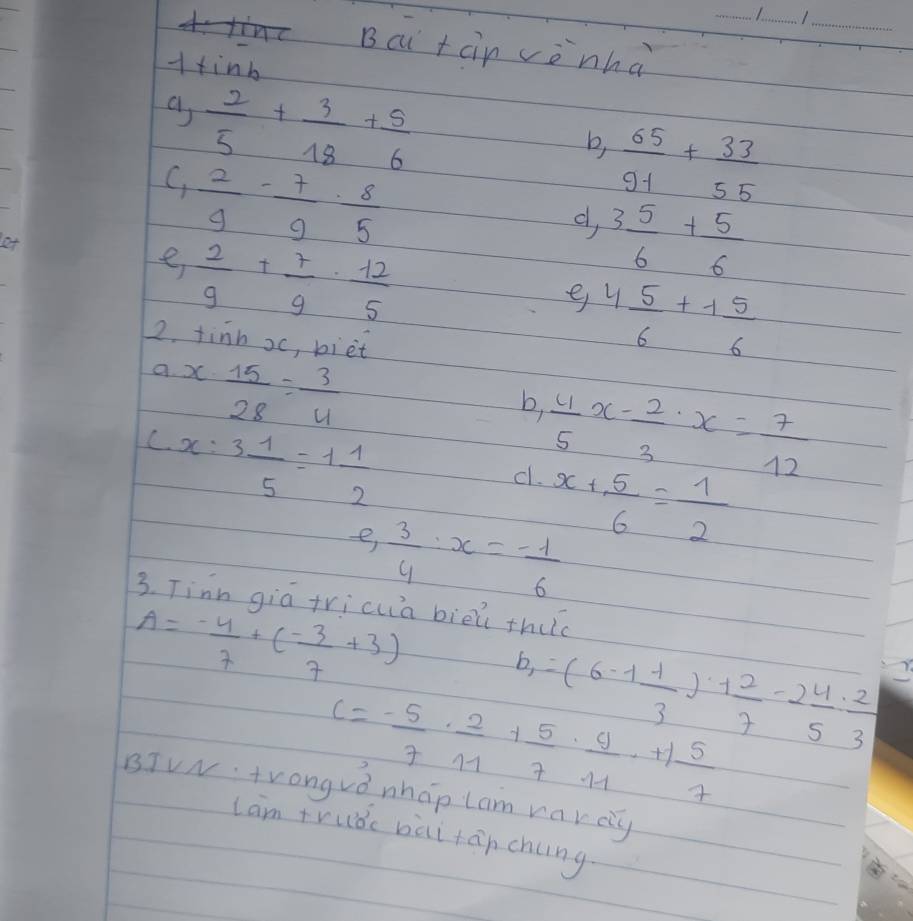 Bài tập về nhà
1 tính
a, 2/5 + 3/18 + 5/6
b, 65/91 + 33/55
c, 2/9 - 7/9 . 8/5
d, 3 5/6 + 5/6
e, 2/9 + 7/9 . 12/5
e, 4 5/6 + 1 5/6
2. tính x, biết
a. x . 15/28 = 3/4
b, 4/5 x - 2/3 . x = 7/12
c. x : 3 1/5 = 1 1/2
d. x + 5/6 = 1/2
e, 3/4 . x = -1/6
3. Tính giá trị của biểu thức
A = -4/7 + (-3/7 + 3)
b, = (6 - 1 1/3) . 1 2/7 - 2 4/5 . 2/3
C = -5/7 . 2/11 + 5/7 . 9/11 . + 1 5/7
BTVN. trong vở nháp làm ra rồi
làm trước bài tập chung.